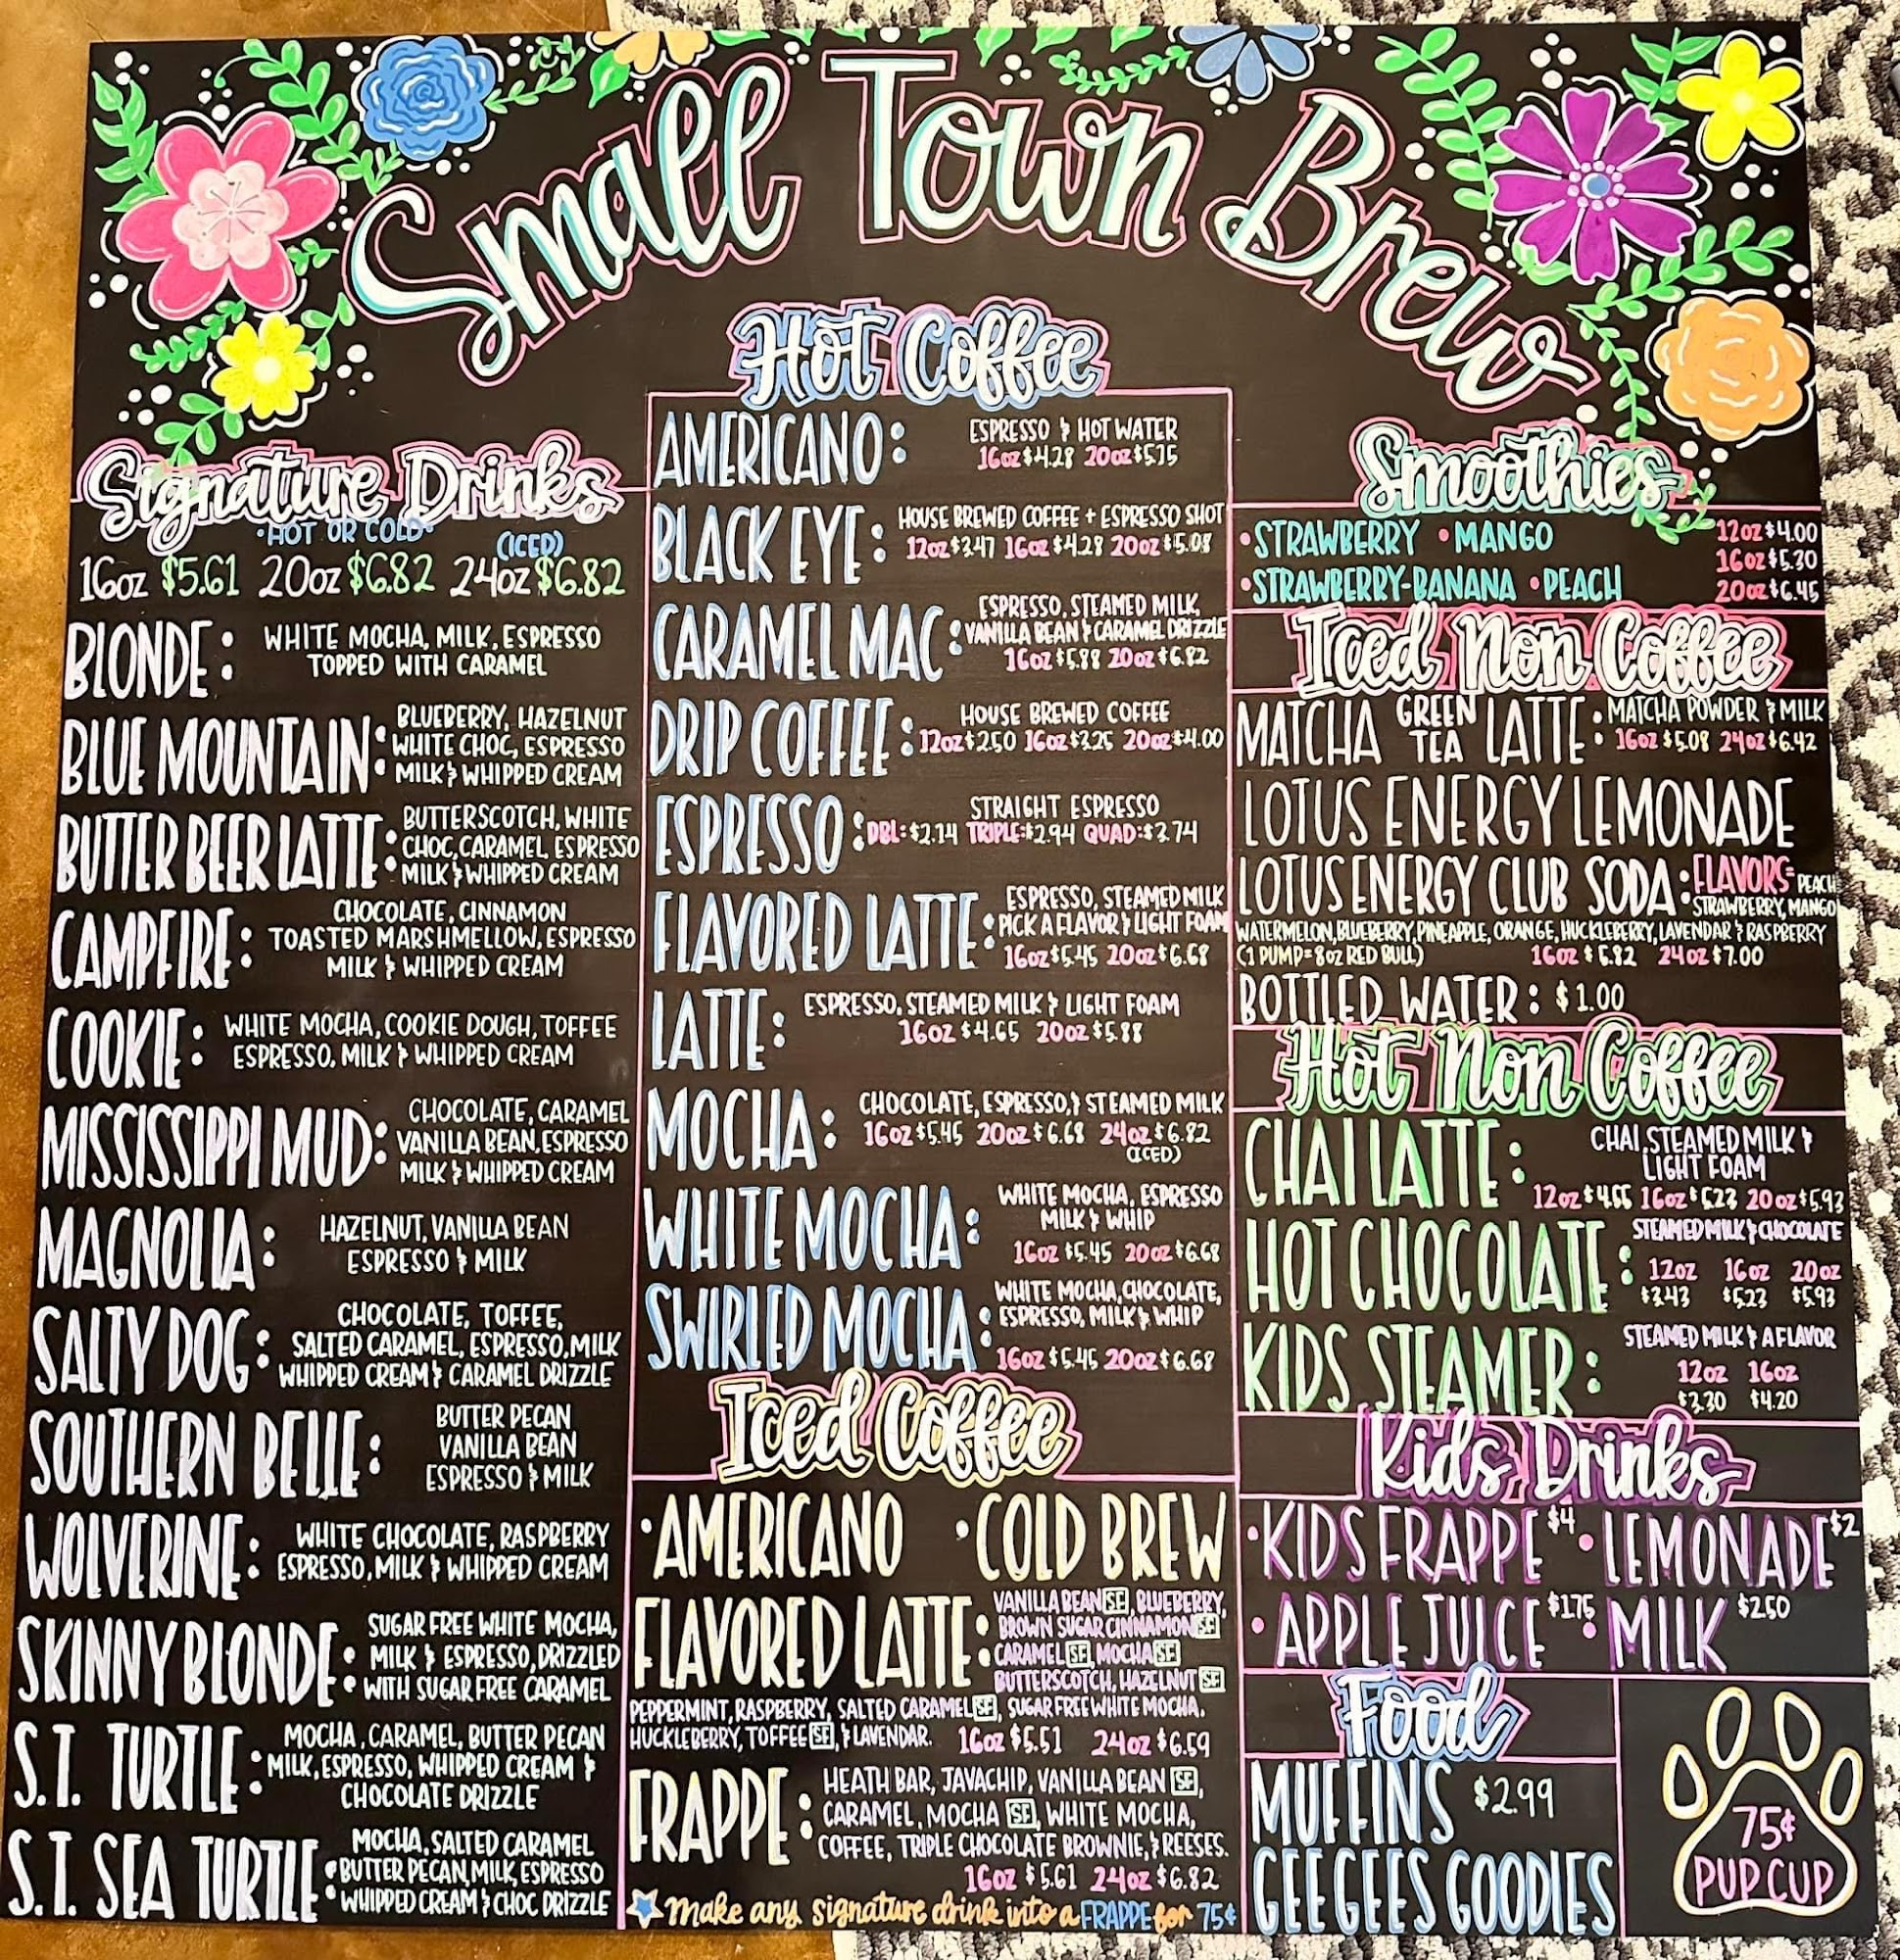 Small Town Brew
Signature Drinks
•HOT OR COLD•
(ICED)
16oz $5.61 20oz $6.82 24oz $6.82
BLONDE: WHITE MOCHA, MILK, ESPRESSO
TOPPED WITH CARAMEL
BLUE MOUNTAIN: BLUEBERRY, HAZELNUT
WHITE CHOC, ESPRESSO
MILK & WHIPPED CREAM
BUTTER BEER LATTE: BUTTERSCOTCH, WHITE
CHOC, CARAMEL, ESPRESSO
MILK & WHIPPED CREAM
CAMPFIRE: CHOCOLATE, CINNAMON
TOASTED MARSHMELLOW, ESPRESSO
MILK & WHIPPED CREAM
COOKIE: WHITE MOCHA, COOKIE DOUGH, TOFFEE
ESPRESSO, MILK & WHIPPED CREAM
MISSISSIPPI MUD: CHOCOLATE, CARAMEL
VANILLA BEAN, ESPRESSO
MILK & WHIPPED CREAM
MAGNOLIA: HAZELNUT, VANILLA BEAN
ESPRESSO & MILK
SALTY DOG: CHOCOLATE, TOFFEE,
SALTED CARAMEL, ESPRESSO, MILK
WHIPPED CREAM & CARAMEL DRIZZLE
SOUTHERN BELLE: BUTTER PECAN
VANILLA BEAN
ESPRESSO & MILK
WOLVERINE: WHITE CHOCOLATE, RASPBERRY
ESPRESSO, MILK & WHIPPED CREAM
SKINNY BLONDE: SUGAR FREE WHITE MOCHA,
MILK & ESPRESSO, DRIZZLED
WITH SUGAR FREE CARAMEL
S.T. TURTLE: MOCHA, CARAMEL, BUTTER PECAN
MILK, ESPRESSO, WHIPPED CREAM &
CHOCOLATE DRIZZLE
S.T. SEA TURTLE: MOCHA, SALTED CARAMEL
BUTTER PECAN, MILK, ESPRESSO
WHIPPED CREAM & CHOC DRIZZLE
Hot Coffee
AMERICANO: ESPRESSO & HOT WATER
16oz $4.28 20oz $5.75
BLACK EYE: HOUSE BREWED COFFEE + ESPRESSO SHOT
12oz $3.47 16oz $4.28 20oz $5.08
CARAMEL MAC: ESPRESSO, STEAMED MILK,
VANILLA BEAN & CARAMEL DRIZZLE
16oz $5.88 20oz $6.82
DRIP COFFEE: HOUSE BREWED COFFEE
12oz $2.50 16oz $3.25 20oz $4.00
ESPRESSO: STRAIGHT ESPRESSO
DBL: $2.14 TRIPLE: $2.94 QUAD: $3.74
FLAVORED LATTE: ESPRESSO, STEAMED MILK
PICK A FLAVOR & LIGHT FOAM
16oz $5.45 20oz $6.68
LATTE: ESPRESSO, STEAMED MILK & LIGHT FOAM
16oz $4.65 20oz $5.88
MOCHA: CHOCOLATE, ESPRESSO, & STEAMED MILK
16oz $5.45 20oz $6.68 24oz $6.82
(ICED)
WHITE MOCHA: WHITE MOCHA, ESPRESSO
MILK & WHIP
16oz $5.45 20oz $6.68
SWIRLED MOCHA: WHITE MOCHA, CHOCOLATE,
ESPRESSO, MILK & WHIP
16oz $5.45 20oz $6.68
Iced Coffee
•AMERICANO •COLD BREW
FLAVORED LATTE: VANILLA BEAN SF, BLUEBERRY,
BROWN SUGAR CINNAMON SF
CARAMEL SF, MOCHA SF
BUTTERSCOTCH, HAZELNUT SF
PEPPERMINT, RASPBERRY, SALTED CARAMEL SF, SUGAR FREE WHITE MOCHA,
HUCKLEBERRY, TOFFEE SF, & LAVENDAR. 16oz $5.51 24oz $6.59
FRAPPE: HEATH BAR, JAVACHIP, VANILLA BEAN SF,
CARAMEL, MOCHA SF, WHITE MOCHA,
COFFEE, TRIPLE CHOCOLATE BROWNIE, & REESES.
16oz $5.61 24oz $6.82
Make any signature drink into a FRAPPE for 75¢
Smoothies
•STRAWBERRY •MANGO 12oz $4.00
16oz $5.30
•STRAWBERRY-BANANA •PEACH 20oz $6.45
Iced Non Coffee
MATCHA GREEN TEA LATTE: MATCHA POWDER & MILK
16oz $5.08 24oz $6.42
LOTUS ENERGY LEMONADE
LOTUS ENERGY CLUB SODA: FLAVORS= PEACH
STRAWBERRY, MANGO
WATERMELON, BLUEBERRY, PINEAPPLE, ORANGE, HUCKLEBERRY, LAVENDAR & RASPBERRY
(1 PUMP = 8oz RED BULL) 16oz $5.82 24oz $7.00
BOTTLED WATER: $1.00
Hot Non Coffee
CHAI LATTE: CHAI, STEAMED MILK &
LIGHT FOAM
12oz 16oz $5.23 20oz $5.93
HOT CHOCOLATE: STEAMED MILK & CHOCOLATE
12oz 16oz 20oz
$3.43 $5.23 $5.93
KIDS STEAMER: STEAMED MILK & A FLAVOR
12oz 16oz
$3.30 $4.20
Kids Drinks
•KIDS FRAPPE $4 •LEMONADE $2
•APPLE JUICE $1.75 •MILK $2.50
Food
MUFFINS $2.99
GEEGEES GOODIES
75¢
PUP CUP